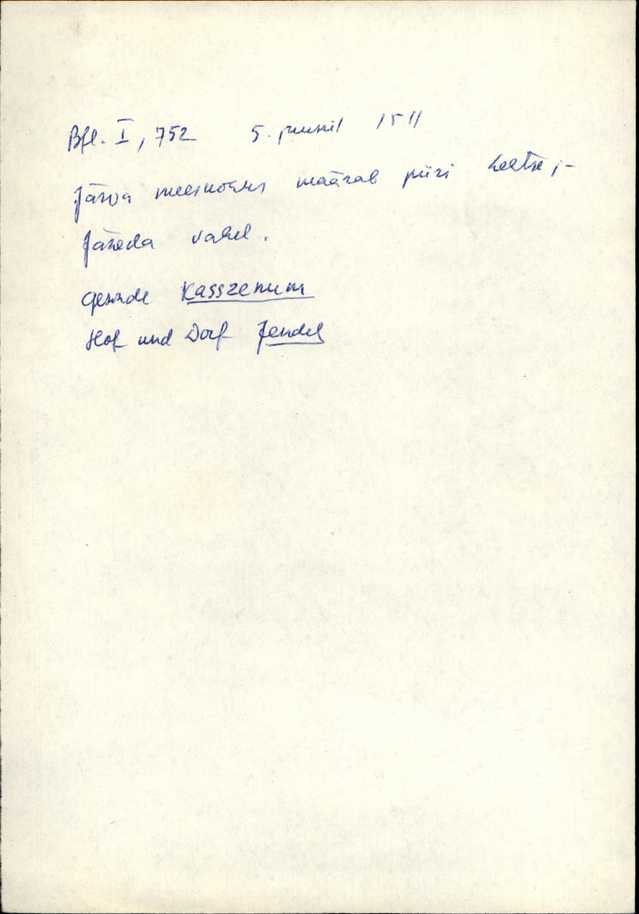 Bfl. I, 752 5. juunil 1511
Järva meeskohus määrab piiri Leetse,-
Jäneda vahel.
Gesinde Kasszenurm
Hof und Dorf Jendel